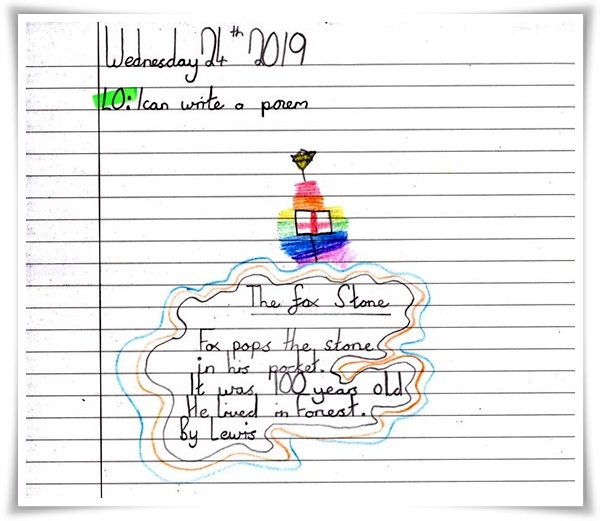 Wednesday 24th 2019
LO: I can write a porem
The fox Stone
Fox pops the stone
in his pocket.
It was 100 years old
He lived in forrest.
By Lewis